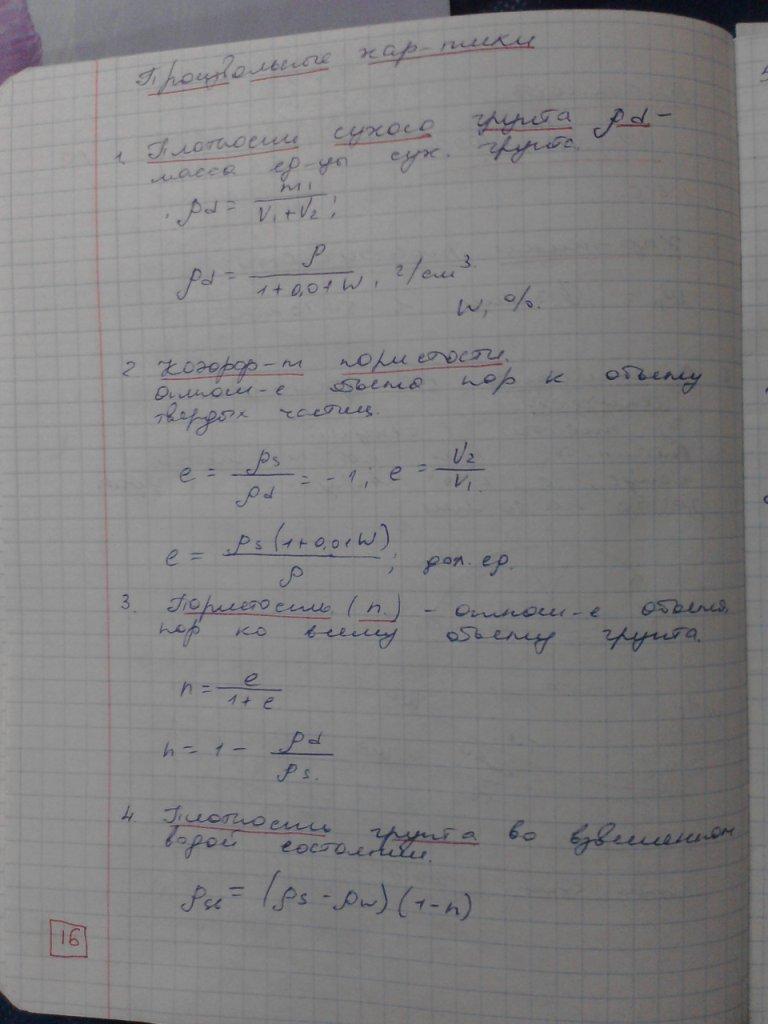 Произвольные хар-тики
1. Плотность сухого грунта ρd –
масса ед-цы сух. грунта.
ρd = m₁/(V₁+V₂);
ρd = ρ/(1+0,01W), г/см³.
W, %.
2 Коэфф-т пористости.
отнош-е объема пор к объему
твердых частиц.
e = ρs/ρd = -1; e = V₂/V₁.
e = ρs(1+0,01W)/ρ; дол. ед.
3. Пористость (n.) – отнош-е объема
пор ко всему объему грунта.
n = e/(1+e)
n = 1 – ρd/ρs.
4. Плотность грунта во взвешенном
водой состоянии.
ρ = (ρs – ρw)(1-n)
16